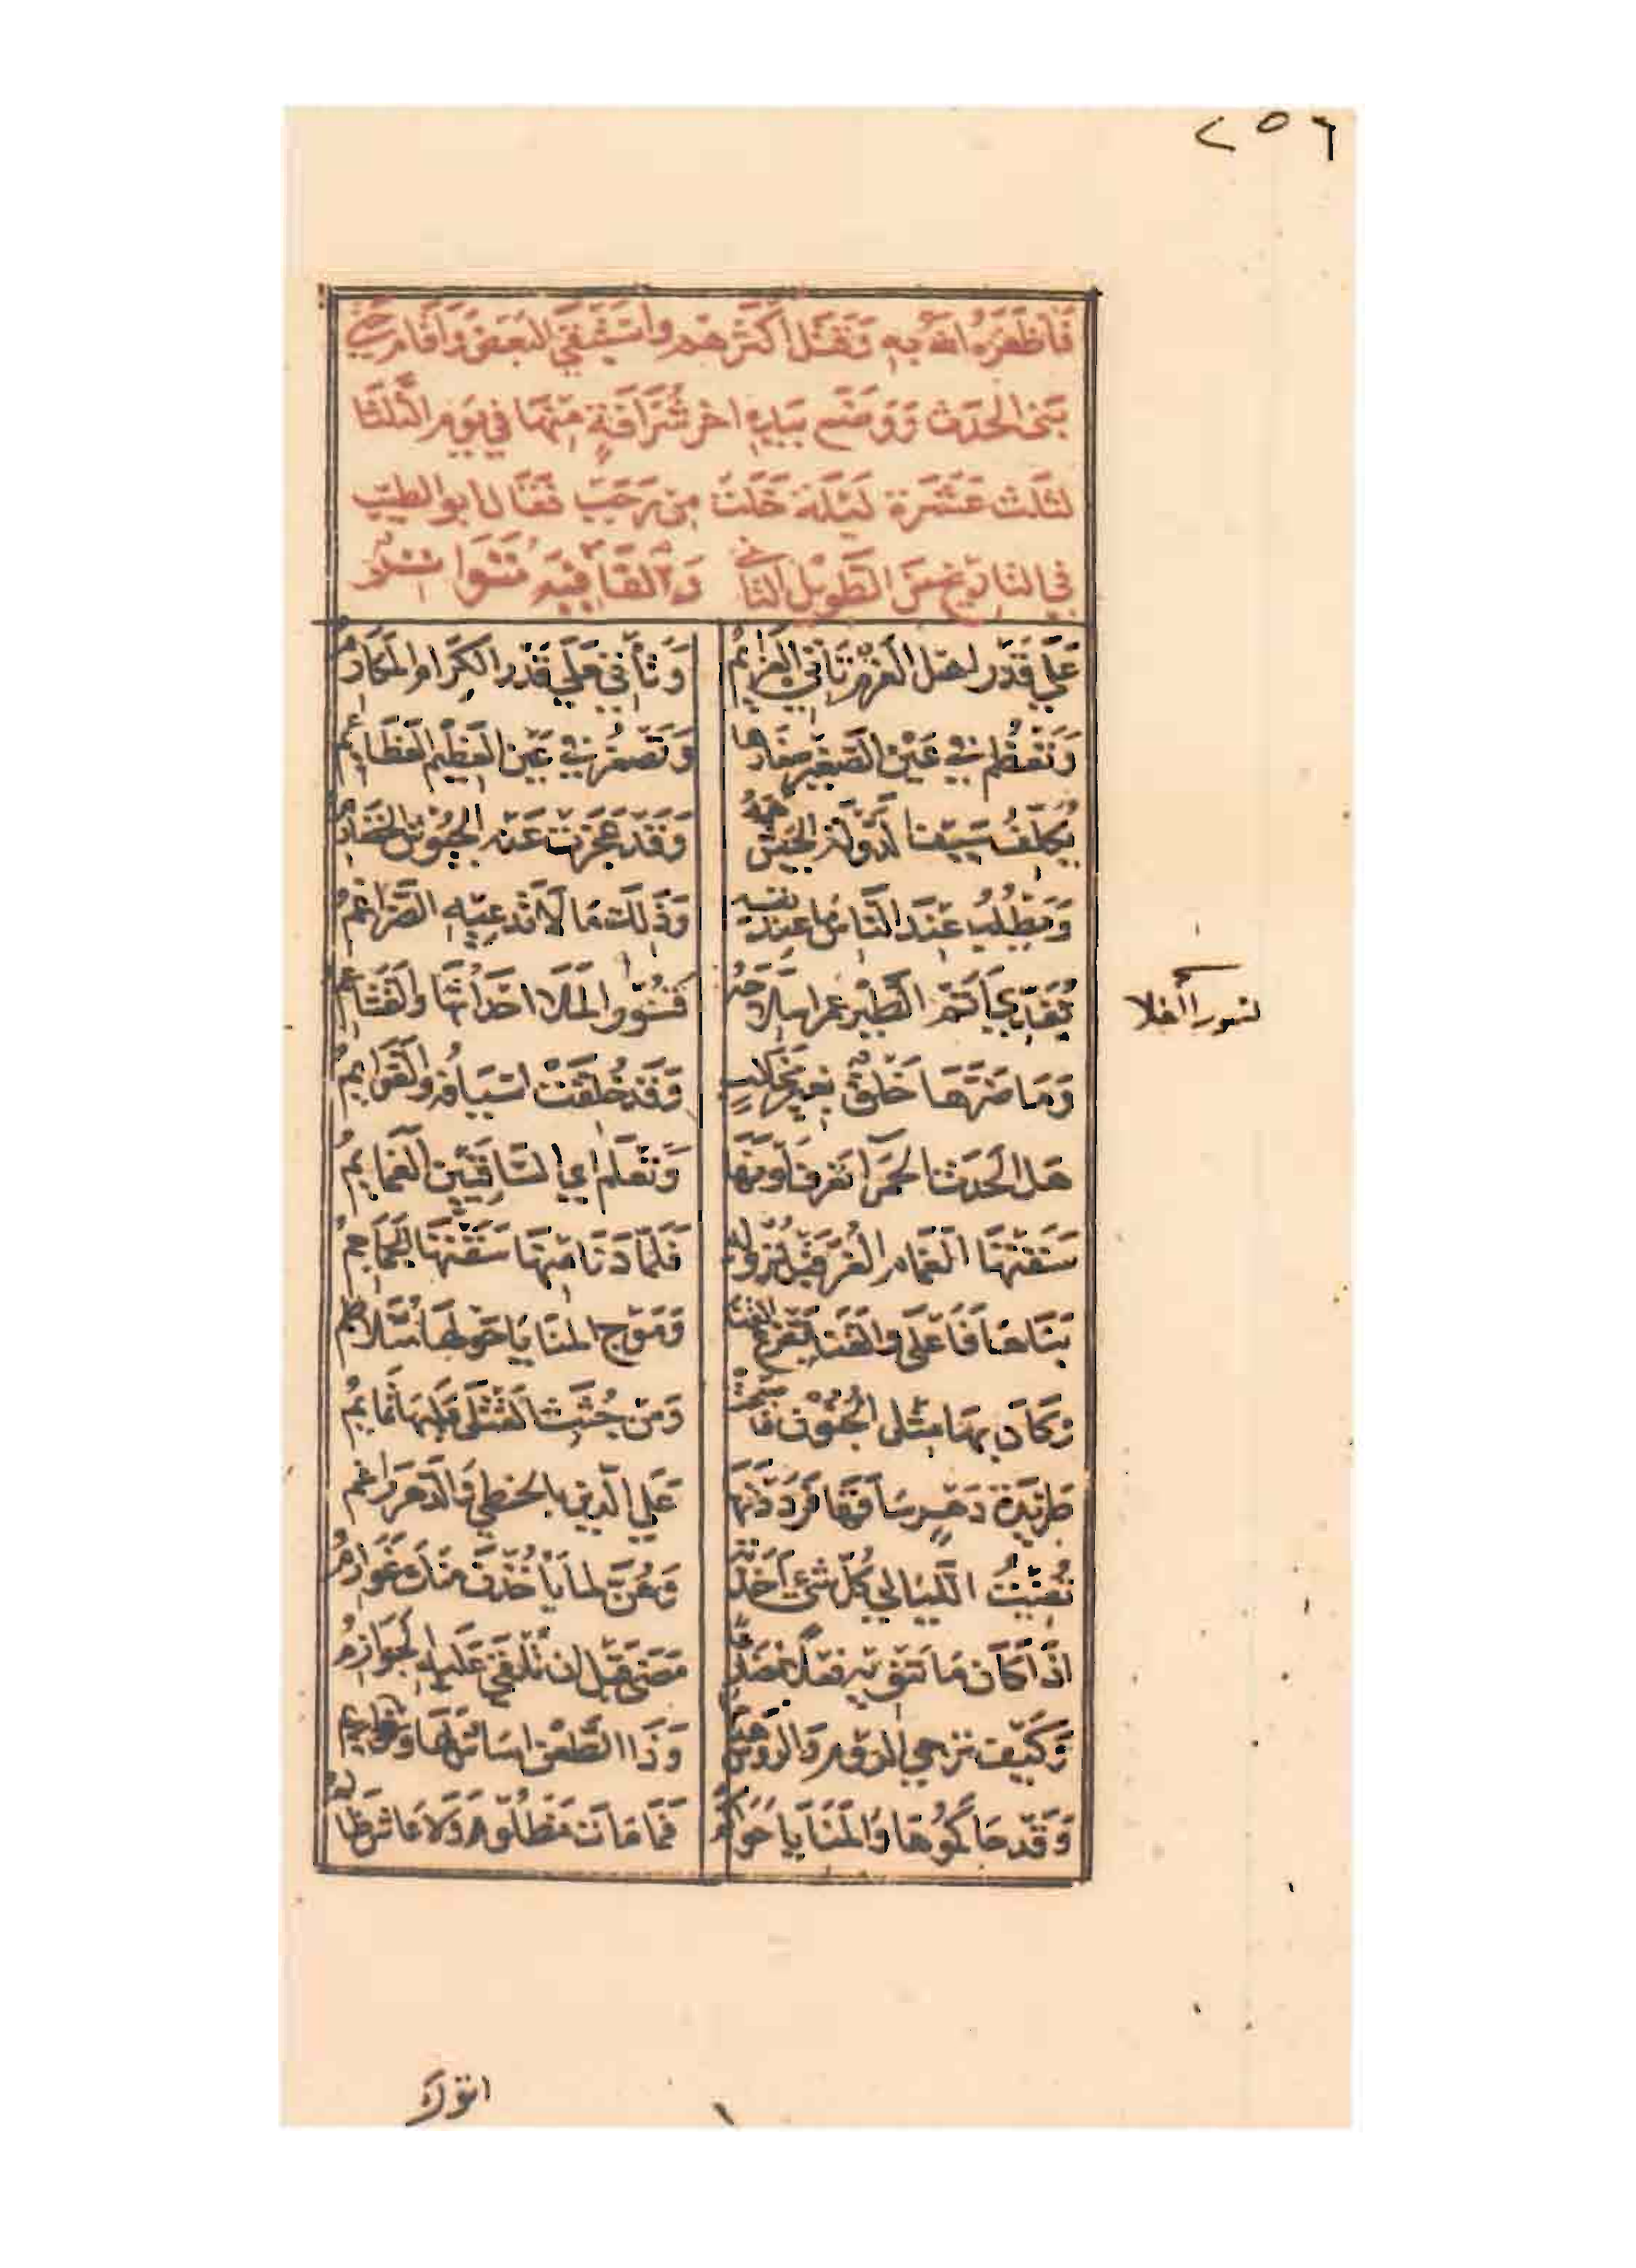 ٢٥٦
فَاَظفَرَهُ اللّه بهِ وَقَتَل اَكثَرَهُم واَستَبقَي البَعَضَ وَاَقَام حَتي
بَنى الحَدَث وَوَضَع بَيدِهِ اخر شُرَافَةٍ مِنهَا في يَوم الثَّلثَا
لثلَث عَشَرَة لَيلَة خَلَت مِن رَجَب فَقَال ابو الطيّب
في التاريخ مِنَ الطَّويْل الثاني وَالقَافيَه مُتَوَاتر
عَلَي قَدْر اهل العَزْم تَاتي العَزائمُ
وَتأتي عَلَي قَدْر الكِرَام المكَارمُ
وَتَعْظُم في عَيْن الصَّغير صغارها
وَتَصْغُر في عَيْن العَظيم العَظَائمُ
يُكَلّفُ سَيف الدَّوْلَة الجَيشَ هَمهُ
وَقَدْ عَجَزت عَنه الجُيُوش الخضَارمُ
وَيَطْلُبُ عِندَ النَّاس مَا عِندَ نفسه
وَذَلك مَا لَا تَدعيه الضَّرَاغمُ
يُفَدّي اَتَمّ الطَّيْر عمرا سلَاحَهُ
نُسُور الملَا احْدَاثُهَا وَالقَشَاعمُ
لنسور الملا
وَمَا ضَرَّهَا خَلْقٌ بغير مَخَالب
وَقَدْ خُلقَتْ اسْيَافُه وَالقَوَايمُ
هَل الحَدَث الحَمرآ تَعْرف لَوْنَهَا
وَتَعْلَم اي السَّاقيَيْن الغَمَايمُ
سَقَتْهَا الغَمَام الغُرّ قَبْلَ نُزُوله
فَلَمَّا دَنَا منهَا سَقَتْهَا الجمَاجمُ
بَنَاهَا فَاَعْلَى وَالقَنَا يَقرَع القَنَا
وَمَوْج المنَايَا حَوْلهَا مُتَلَاطمُ
وَكَادَ بهَا مثْل الجُنُوْن فَاَصْبَحَتْ
وَمنْ جُثَث القَتْلَى عَلَيهَا تَمَايمُ
طَريْدَة دَهْرٍ سَاقَهَا فَرَدَدْتَهَا
عَلَي الدّين بالخطي وَالدَّهر رَاغمُ
تُفيْتُ اللَّيَالي كُلّ شئ اخَذْتَهُ
وَهُنَّ لمَا يَأخُذْنَ منْكَ غَوَارمُ
اذَا كَان مَا تَنْويه فعْلًا مضَارعًا
مَضَى قَبْل ان تُلْقَي عَلَيه الجَوَازمُ
وَكَيْف تُرَجي الرّوم وَالروس هَدْمَهَا
وَذَا الطَّعْن اسَاسٌ لهَا وَدعَايمُ
وَقَدْ حَاكَمُوهَا وَالمَنَايَا حَوَاكمُ
فَمَا مَات مَظْلُوم وَلَا عَاش ظَالمُ
اتوك